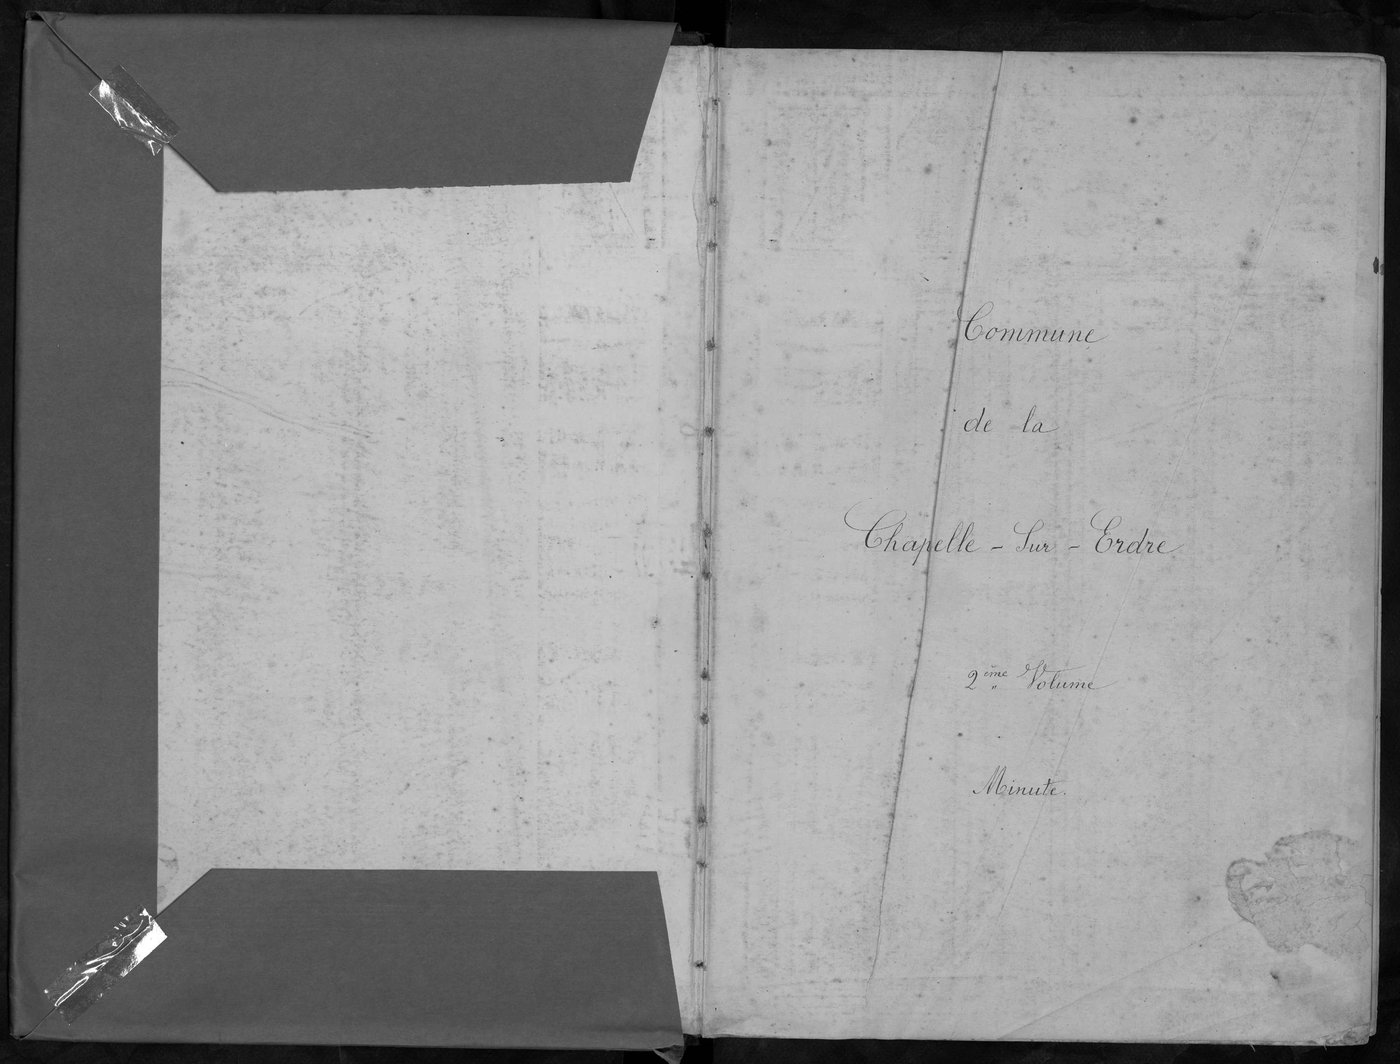 Commune
de la
Chapelle - Sur - Erdre
2ème Volume
Minute.